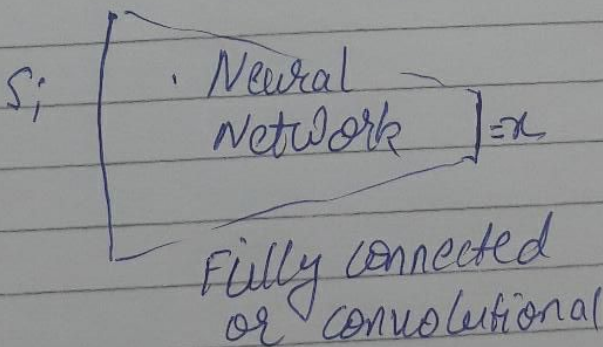 Si
Neural
Network =x
Fully connected
or convolutional